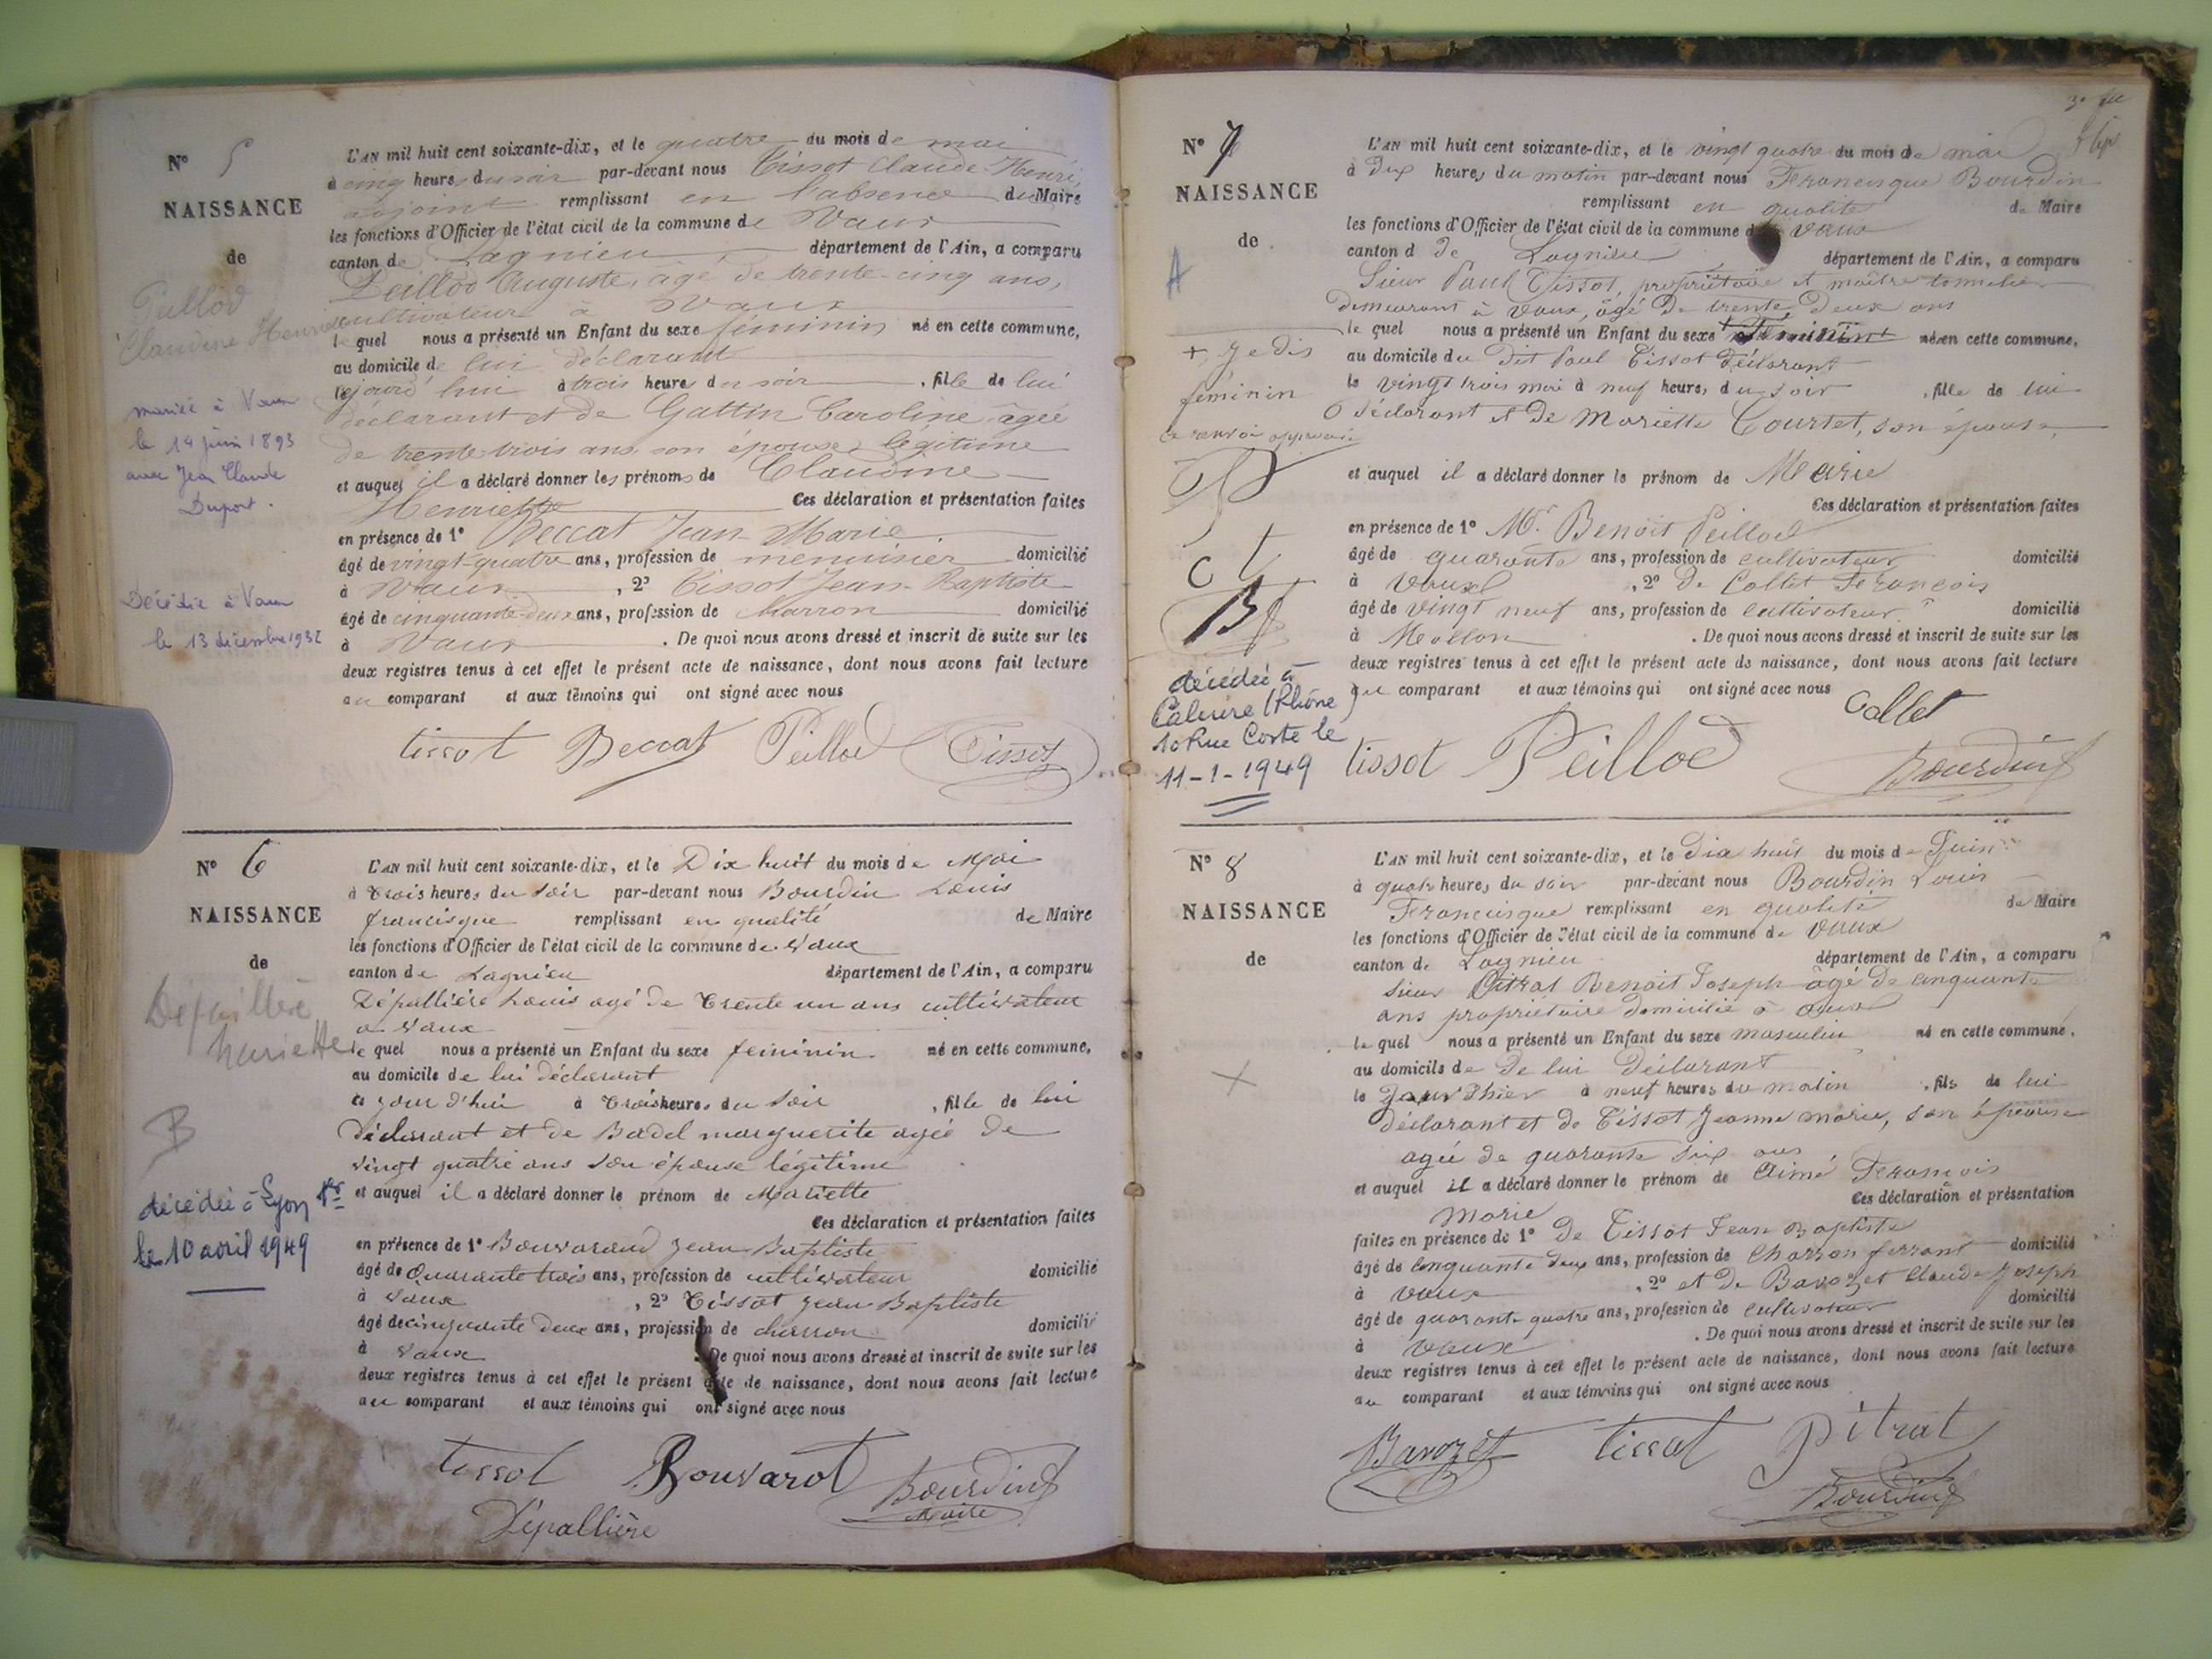 N° 5
NAISSANCE
de
Peillod
Claudine Henriette
mariée à Vaux
le 14 juin 1893
avec Jean Claude
Duport.
Décédée à Vaux
le 13 décembre 1932
L'AN mil huit cent soixante-dix, et le quatre du mois de mai
à cinq heures du soir par-devant nous Tissot Claude Henri,
adjoint remplissant en l'absence du Maire
les fonctions d'Officier de l'état civil de la commune de Vaux
canton de Lagnieu département de l'Ain, a comparu
Peillod Auguste, âgé de trente-cinq ans,
cultivateur à Vaux
lequel nous a présenté un Enfant du sexe féminin né en cette commune,
au domicile de lui déclarant
cejourd'hui à trois heures du soir, fille de lui
déclarant et de Gattin Caroline âgée
de trente trois ans, son épouse légitime
et auquel il a déclaré donner les prénoms de Claudine
Henriette Ces déclaration et présentation faites
en présence de 1° Beccat Jean Marie
âgé de vingt-quatre ans, profession de menuisier domicilié
à Vaux, 2° Tissot Jean-Baptiste
âgé de cinquante-deux ans, profession de charron domicilié
à Vaux. De quoi nous avons dressé et inscrit de suite sur les
deux registres tenus à cet effet le présent acte de naissance, dont nous avons fait lecture
au comparant et aux témoins qui ont signé avec nous
tissot Beccat Peillod Tissot
N° 6
NAISSANCE
de
Dépallière
Mariette
B
décédée à Lyon 1er
le 10 avril 1949
L'AN mil huit cent soixante-dix, et le Dix huit du mois de Mai
à trois heures du soir par-devant nous Bourdin Louis
francisque remplissant en qualité de Maire
les fonctions d'Officier de l'état civil de la commune de Vaux
canton de Lagnieu département de l'Ain, a comparu
Dépallière Louis agé de Trente un ans cultivateur
a Vaux
le quel nous a présenté un Enfant du sexe feminin né en cette commune,
au domicile de lui déclarant
ce jour d'hui à trois heures du soir, fille de lui
déclarant et de Badel marguerite agée de
vingt quatre ans son épouse légitime
et auquel il a déclaré donner le prénom de Mariette
Ces déclaration et présentation faites
en présence de 1° Bouvarand Jean Baptiste
âgé de Quarante trois ans, profession de cultivateur domicilié
à Vaux, 2° Tissot Jean Baptiste
âgé de cinquante deux ans, profession de charron domicilié
à Vaux. De quoi nous avons dressé et inscrit de suite sur les
deux registres tenus à cet effet le présent acte de naissance, dont nous avons fait lecture
au comparant et aux témoins qui ont signé avec nous
tissot Bouvarot Bourdin
Maire
Dépallière
N° 7
NAISSANCE
de
A
+ Je dis
féminin
ce renvoi approuvé
c t
décédée à
Caluire (Rhône)
10 Rue Coste le
11-1-1949
L'AN mil huit cent soixante-dix, et le vingt quatre du mois de mai
à Dix heures du matin par-devant nous Francisque Bourdin
remplissant en qualité de Maire
les fonctions d'Officier de l'état civil de la commune de Vaux
canton d de Lagnieu département de l'Ain, a comparu
Sieur Paul Tissot, propriétaire et maître tonnelier
demeurant à Vaux, âgé de trente deux ans
le quel nous a présenté un Enfant du sexe + né en cette commune,
au domicile du dit Paul Tissot déclarant
le vingt trois mai à neuf heures du soir, fille de lui
déclarant et de Mariette Courtet, son épouse,
et auquel il a déclaré donner le prénom de Marie
Ces déclaration et présentation faites
en présence de 1° Mr Benoit Peillod
âgé de quarante ans, profession de cultivateur domicilié
à Vaux, 2° De Collet François
âgé de vingt neuf ans, profession de cultivateur domicilié
à Mollon. De quoi nous avons dressé et inscrit de suite sur les
deux registres tenus à cet effet le présent acte de naissance, dont nous avons fait lecture
au comparant et aux témoins qui ont signé avec nous
Collet
tissot Peillod Bourdin
N° 8
NAISSANCE
de
L'AN mil huit cent soixante-dix, et le dix huit du mois de Juin
à quatre heures du soir par-devant nous Bourdin Louis
Francisque remplissant en qualité de Maire
les fonctions d'Officier de l'état civil de la commune de Vaux
canton de Lagnieu département de l'Ain, a comparu
sieur Pitrat Benoit Joseph âgé de cinquante
ans propriétaire domicilié à Vaux
le quel nous a présenté un Enfant du sexe masculin né en cette commune.
au domicile de De lui Déclarant
le Jour d'hier à neuf heures du matin, fils de lui
déclarant et de Tissot Jeanne marie, son épouse
agée de quarante six ans
et auquel il a déclaré donner le prénom de Aimé François
Ces déclaration et présentation
Marie
faites en présence de 1° De Tissot Jean Baptiste
âgé de Cinquante deux ans, profession de Charron ferrant domicilié
à Vaux, 2° et de Barozet Claude Joseph
âgé de quarante quatre ans, profession de cultivateur domicilié
à Vaux. De quoi nous avons dressé et inscrit de suite sur les
deux registres tenus à cet effet le présent acte de naissance, dont nous avons fait lecture
au comparant et aux témoins qui ont signé avec nous
Barozet tissot Pitrat
Bourdin